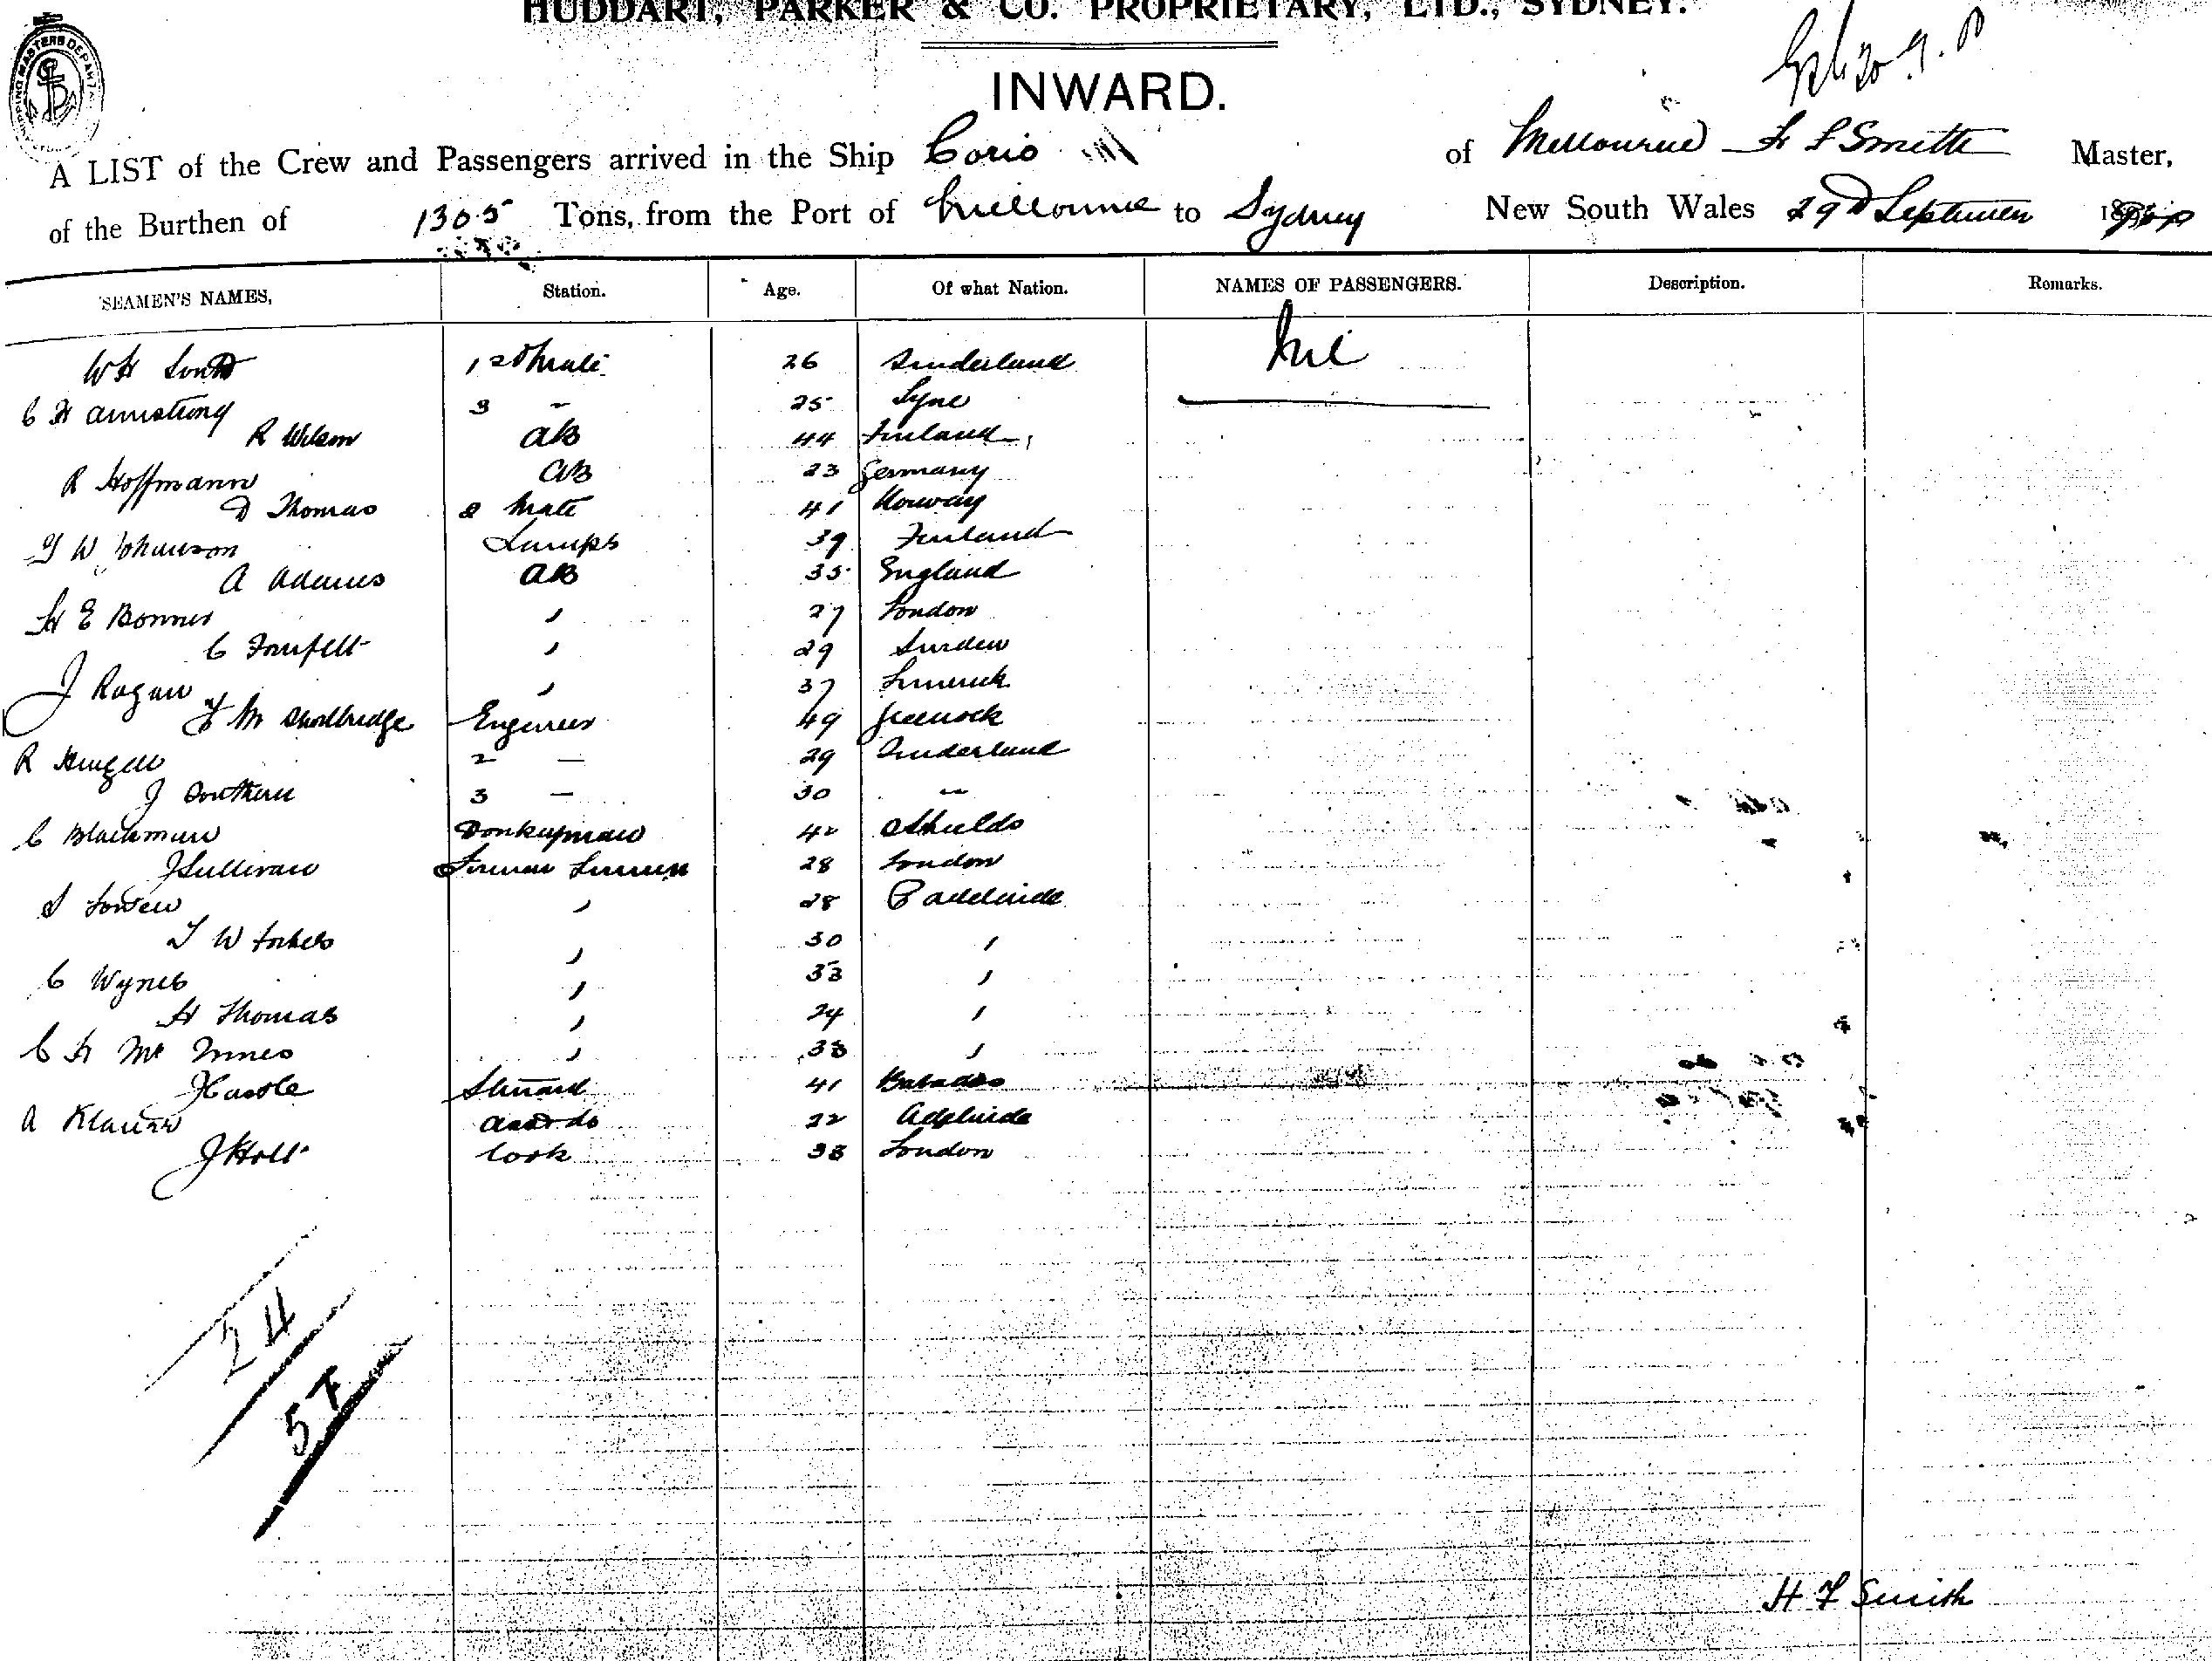 HUDDART, PARKER & CO. PROPRIETARY, LTD., SYDNEY.
INWARD.
A LIST of the Crew and Passengers arrived in the Ship Corio of Melbourne H F Smith Master,
of the Burthen of 1305 Tons, from the Port of Melbourne to Sydney New South Wales 29th September
SEAMEN'S NAMES, Station. Age. Of what Nation. NAMES OF PASSENGERS. Description. Remarks.
W H 1st Mate 26 Sunderland Nil
C H Armstrong 3 - 25 Tyne
R Wilson AB 44 Finland
R Hoffmann AB 23 Germany
D Thomas 2 Mate 41 Norway
J W Johanson Lamps 39 Finland
A Adams AB 35 England
H E Bonner " 27 London
C " 29 Sweden
J Ragan " 37 Limerick
M Shallbridge Engineer 49 Greenock
R 2 - 29 Sunderland
J Southern 3 - 30 "
C Blackmun Donkeyman 42 Shields
J Sullivan Fireman 28 London
S " 28 P Adelaide
T W " 30 "
C Wynes " 33 "
H Thomas " 24 "
C H Mc Innes " 38 "
J Castle Steward 41 Barbados
A Asst do 22 Adelaide
J Holt Cook 38 London
24
57
H F Smith